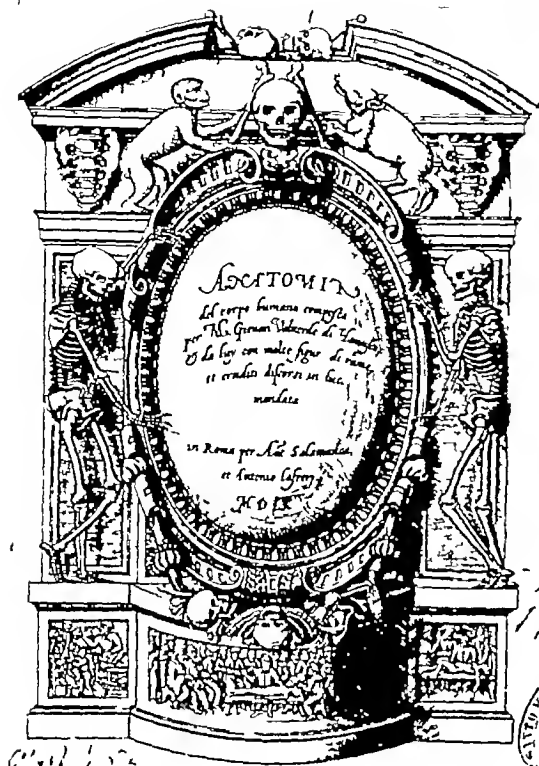 ANATOMIA
del corpo humano composta
per M. Giovan Valverde di
et da luy con molte figure di rame,
et eruditi discorsi in luce
mandata
in Roma per Ant. Salamanca,
et Antonio Lafrerj
M D LX